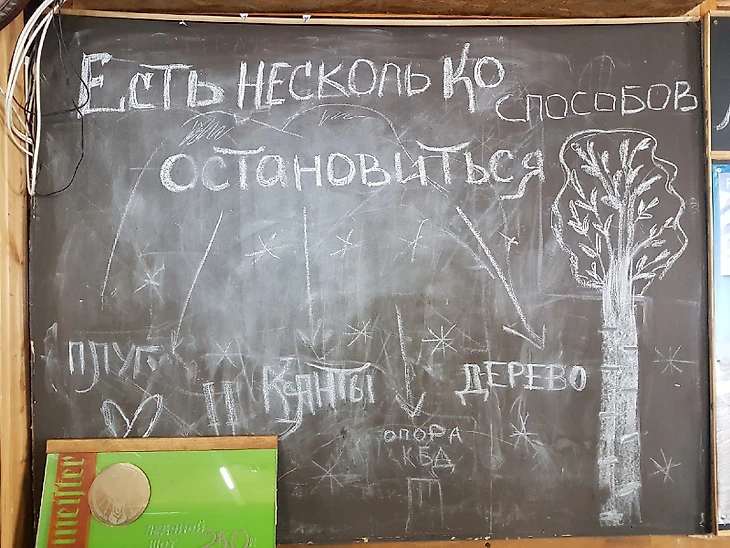 Есть несколько
способов
остановиться
плуг
канты
дерево
опора
КБД
meister
ЛЕДЯНОЙ
ШОТ
250